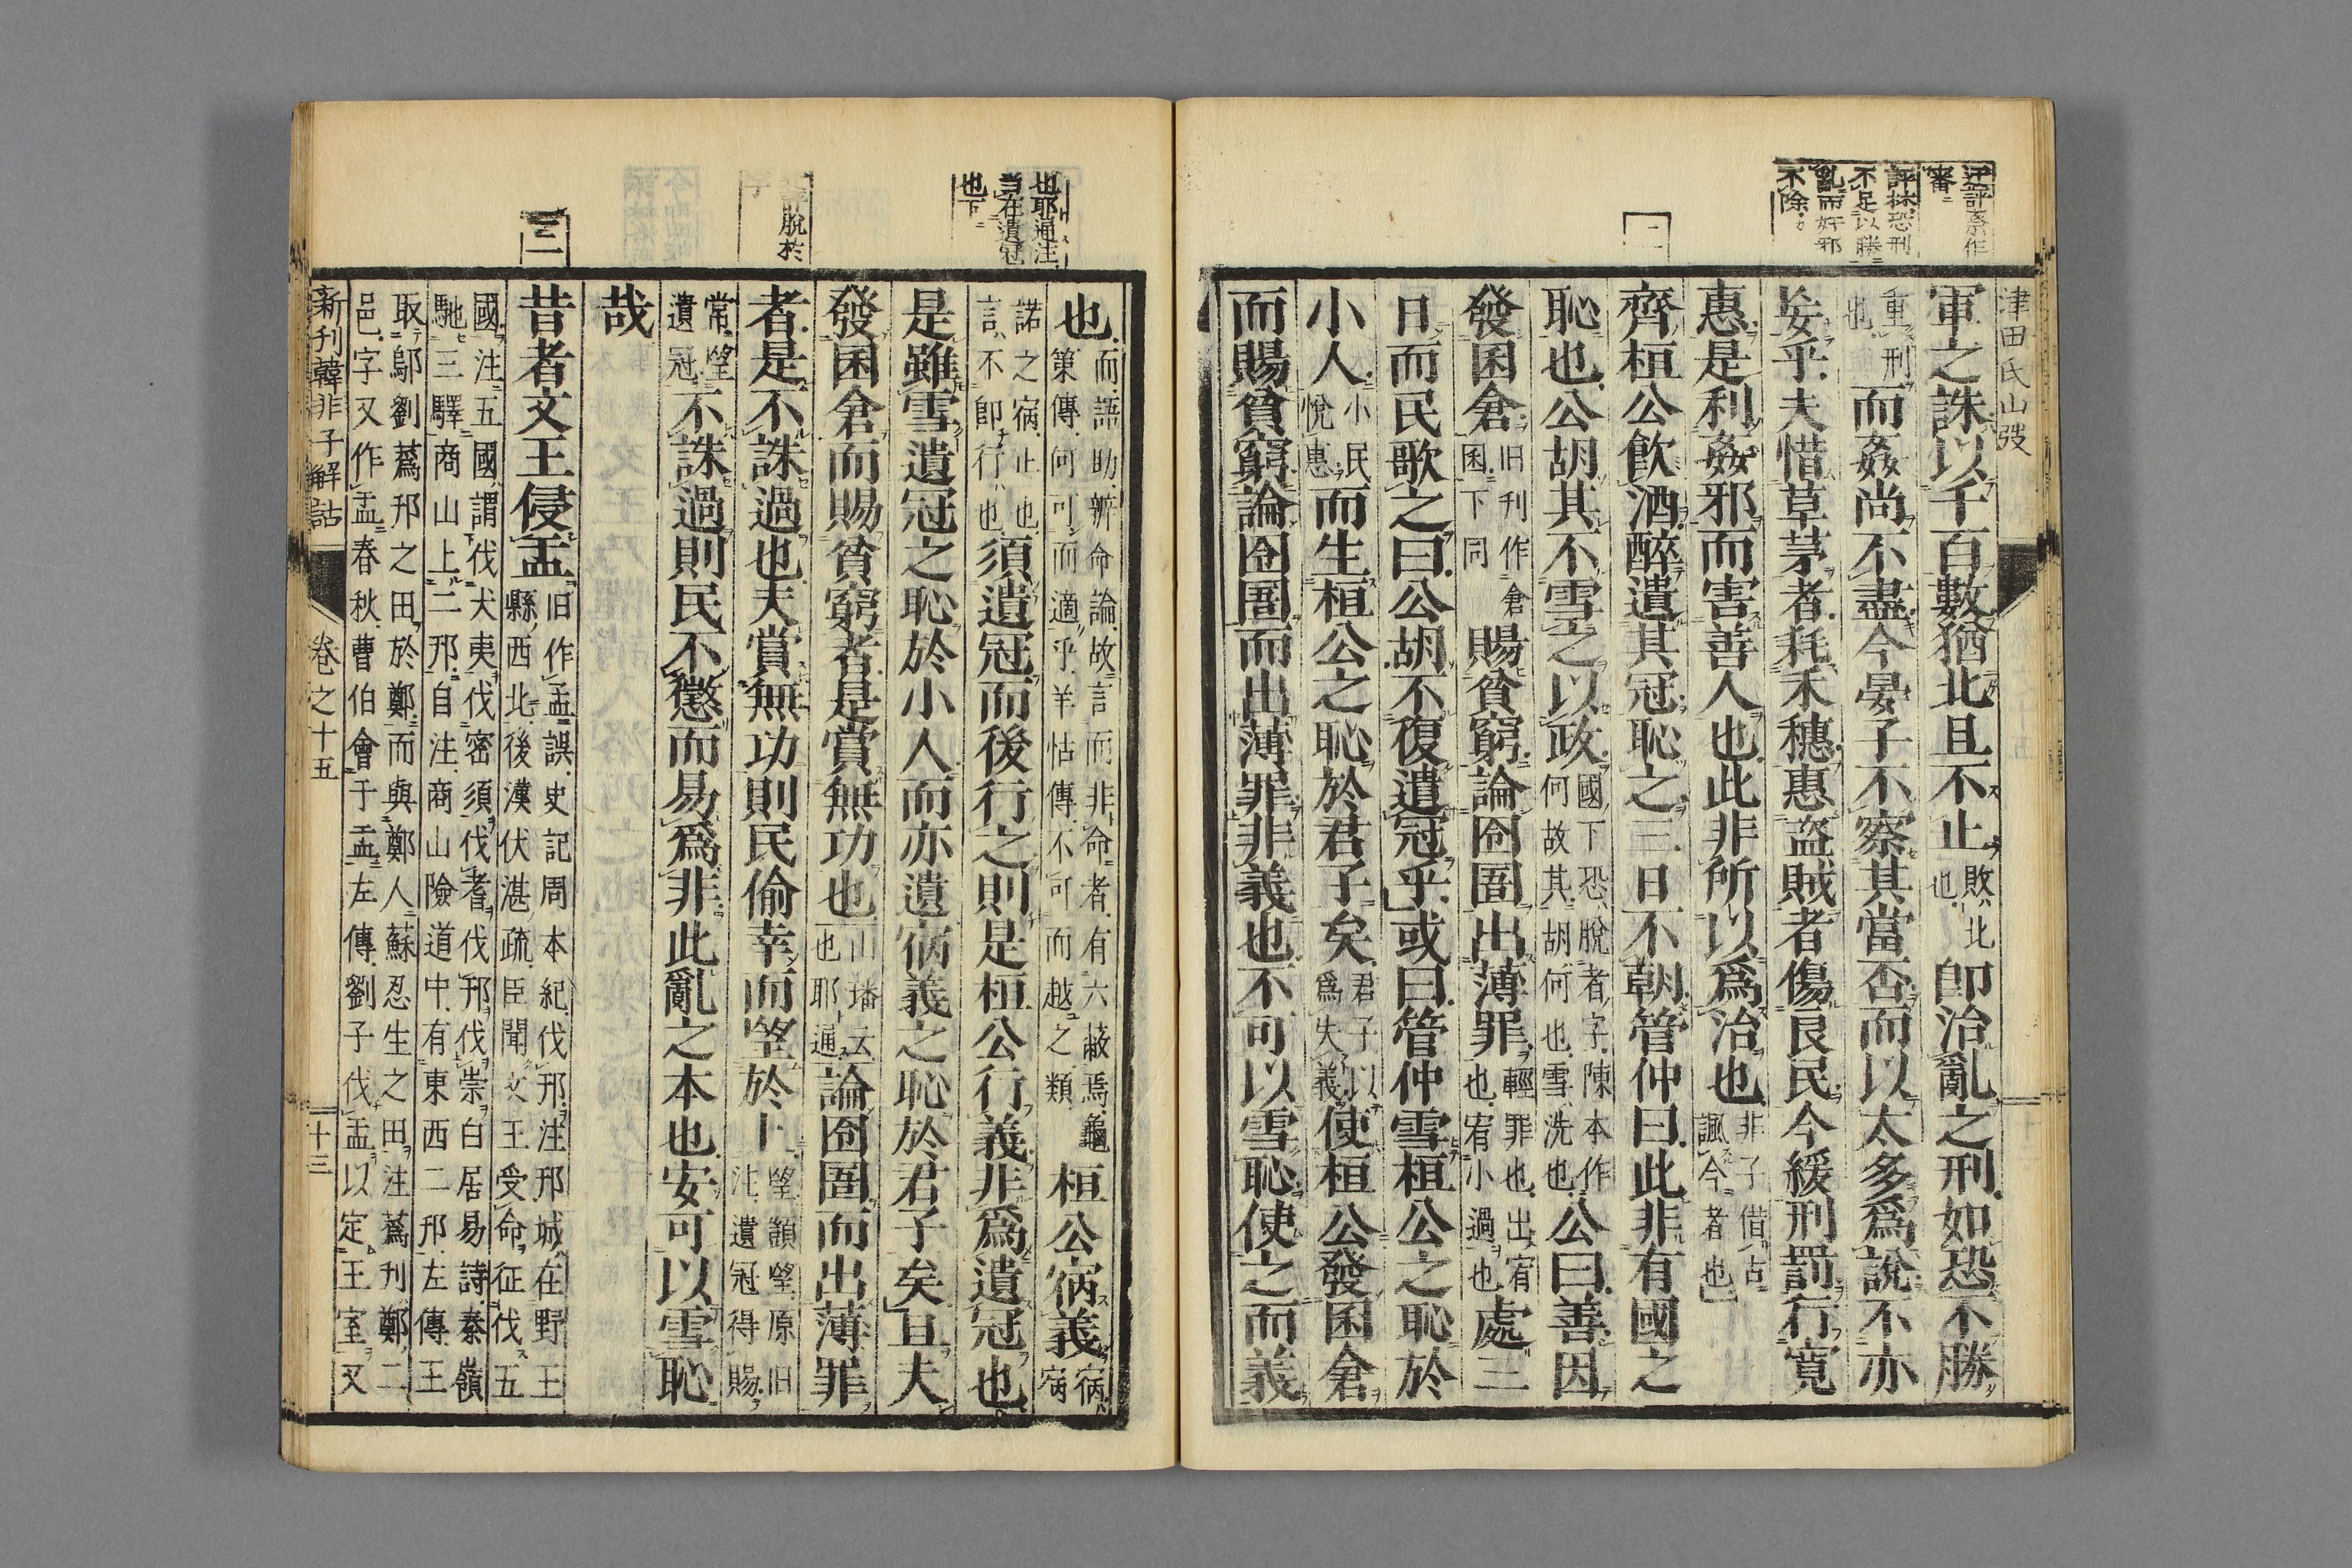 津田氏山發
迂評察作
審
評抹恐刑
不足以勝
亂而奸邪
不除
二
軍之誅以千百數猶北且不止敗北也即治亂之刑如恐不勝
重刑也而姦尚不盡今晏子不察其當否而以太多爲說不亦
妄乎夫惜草茅者耗禾穗惠盜賊者傷良民今緩刑罰行寬
惠是利姦邪而害善人也此非所以爲治也非子借古諷今者也
齊桓公飲酒醉遺其冠恥之三日不朝管仲曰此非有國之
恥也公胡其不雪之以政國下恐脫者字陳本作何故其胡何也雪洗也公曰善因
發囷倉旧刊作倉囷下同賜貧窮論囹圄出薄罪輕罪也出宥也宥小過也處三
日而民歌之曰公胡不復遺冠乎或曰管仲雪桓公之恥於
小人小民悅惠而生桓公之恥於君子矣君子以爲失義使桓公發囷倉
而賜貧窮論囹圄而出薄罪非義也不可以雪恥使之而義
也耶通注
當在遺冠
也下
評脫於
字
三
也而語助辨命論故言而非命者有六蔽焉龜策傳何可而適乎羊怙傳不可而越之類桓公宿義宿宿
諾之宿止也言不即行也須遺冠而後行之則是桓公行義非爲遺冠也
是雖雪遺冠之恥於小人而亦遺宿義之恥於君子矣且夫
發囷倉而賜貧窮者是賞無功也山璠云也耶通論囹圄而出薄罪
者是不誅過也夫賞無功則民偷幸而望於上望顴望原旧注遺冠得賜
常望遺冠不誅過則民不懲而易爲非此亂之本也安可以雪恥
哉
昔者文王侵盂旧作孟誤史記周本紀伐邘注邘城在野王縣西北後漢伏湛疏臣聞文王受命征伐五
國注五國謂伐犬夷伐密須伐耆伐邘伐崇白居易詩秦嶺馳三驛商山上二邘自注商山險道中有東西二邘左傳王
取鄔劉蔿邘之田於鄭而與鄭人蘇忿生之田注蔿刊鄭二邑字又作盂春秋曹伯會于盂左傳劉子伐盂以定王室又
新刊韓非子解詁 卷之十五 十三